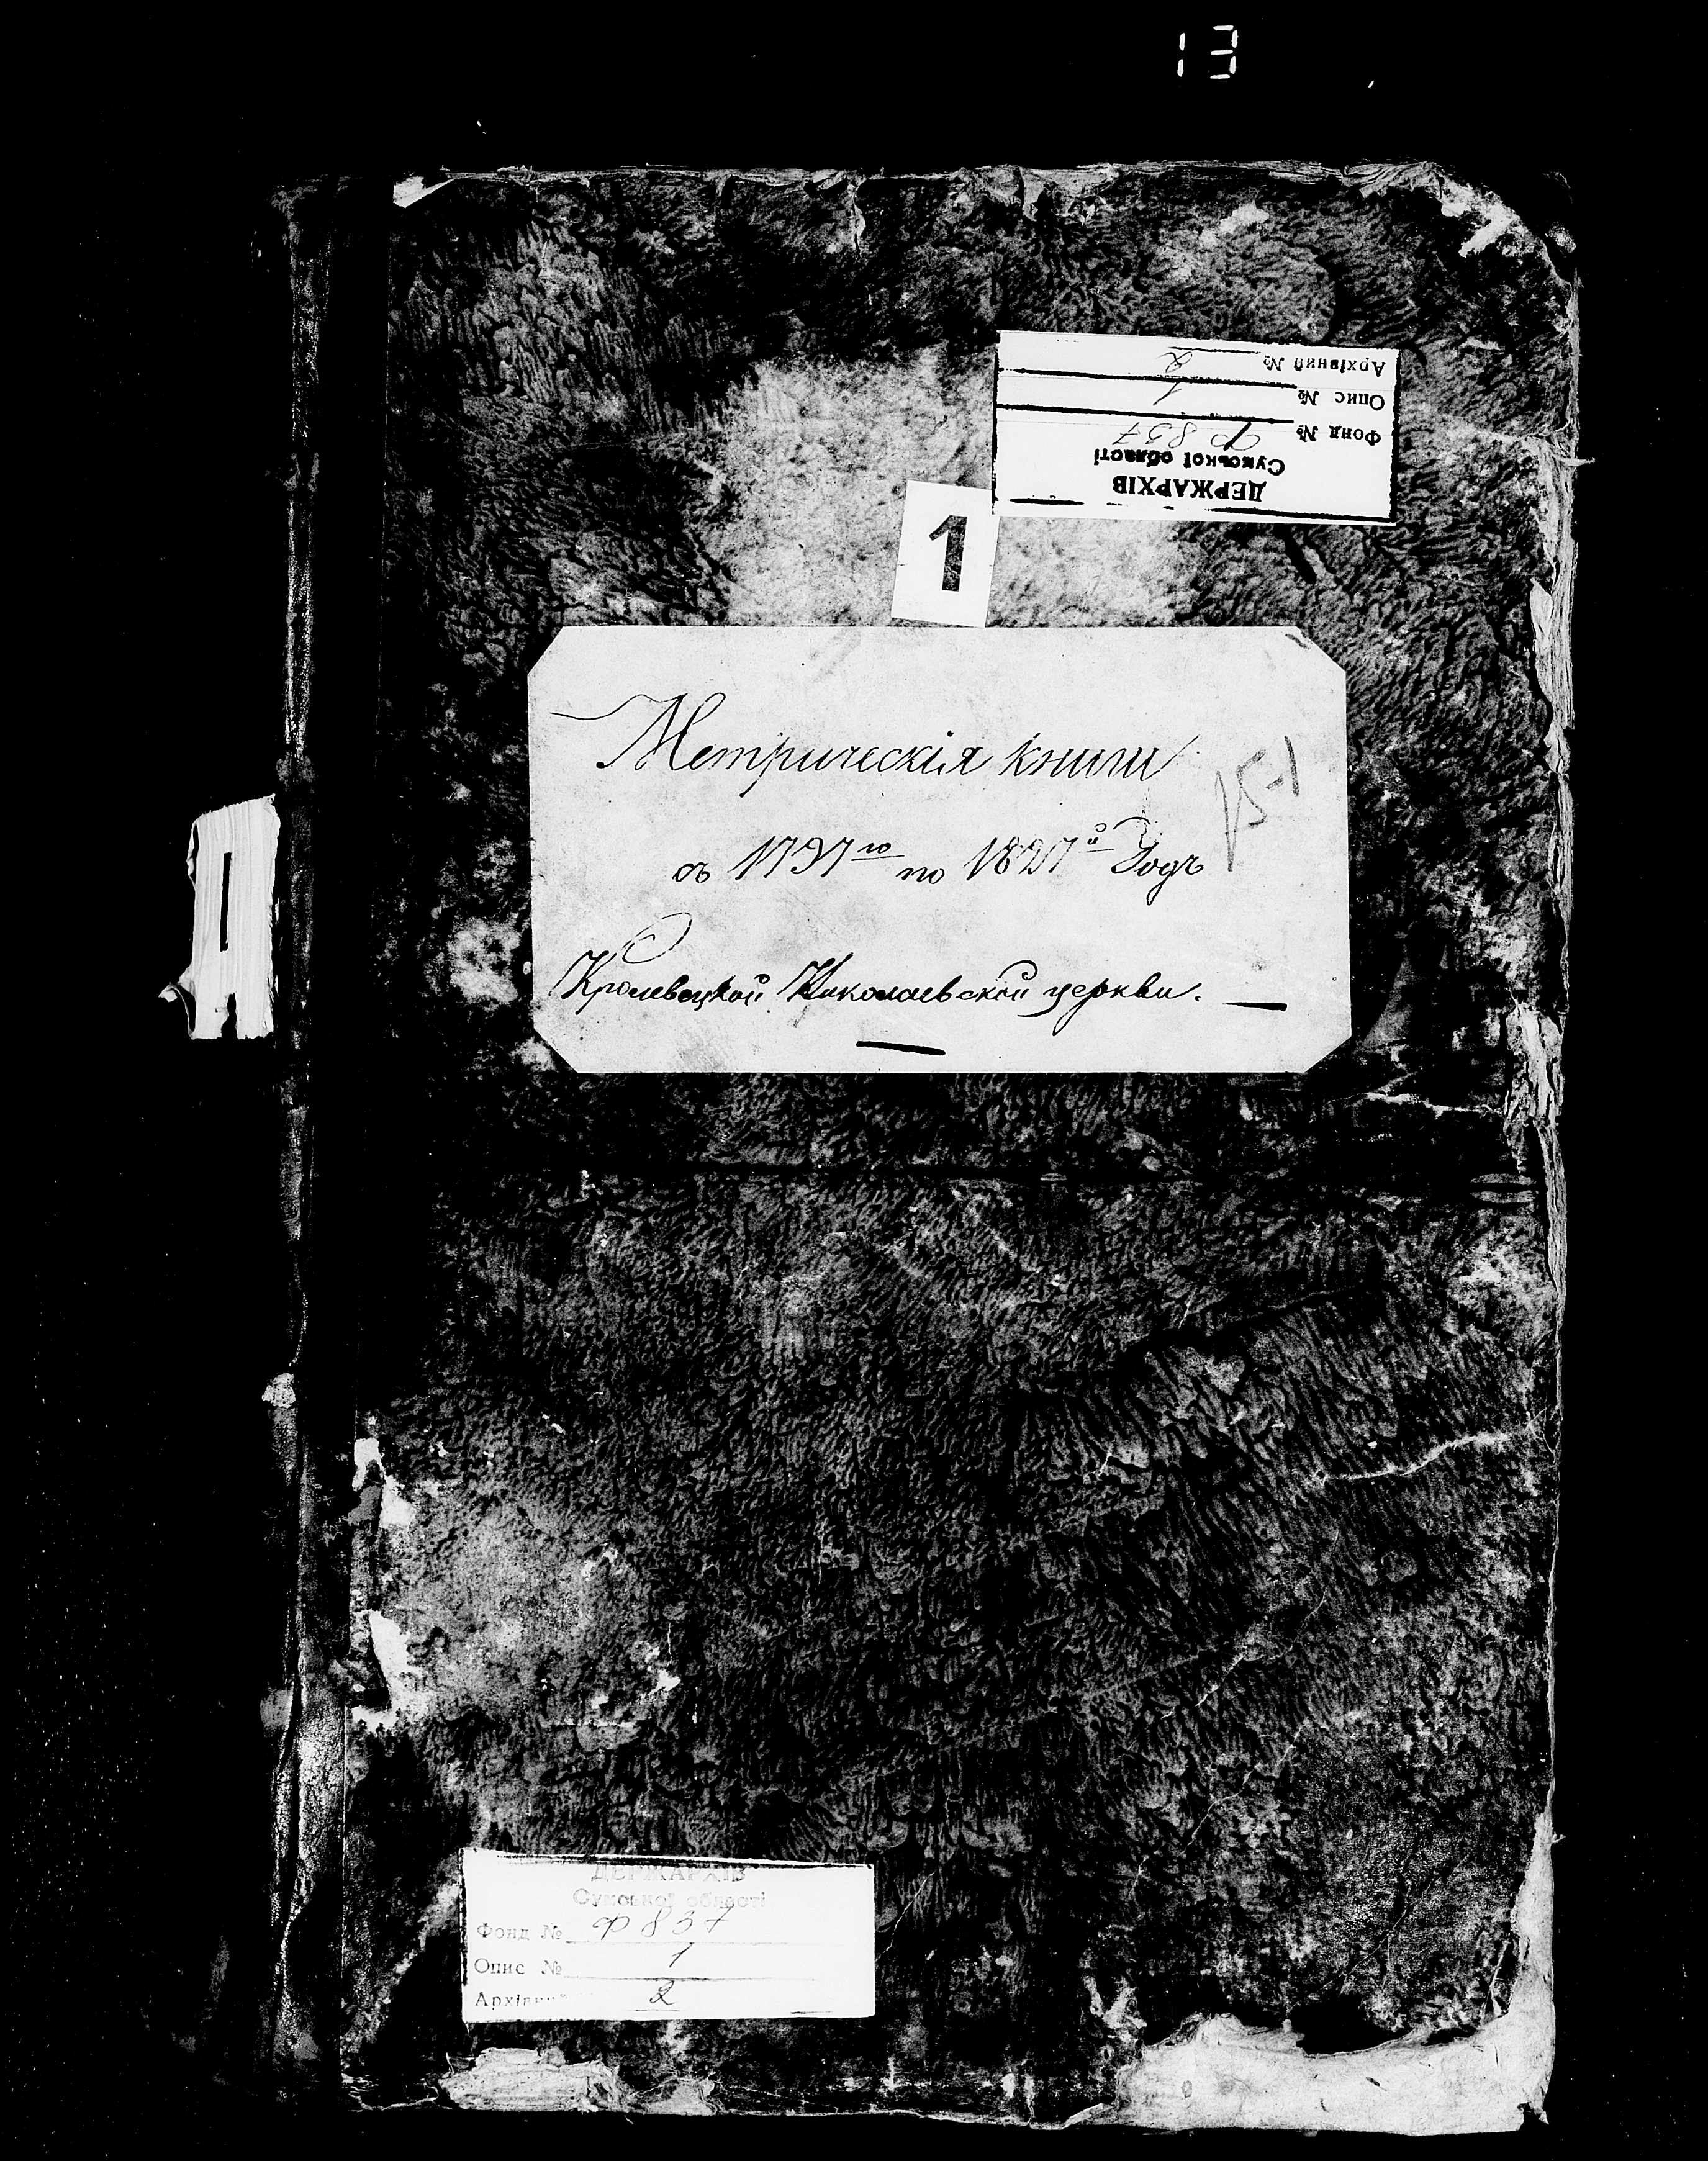 13
ДЕРЖАРХІВ
Сумської області
Фонд № Ф 837
Опис № 1
Архівний № 2
1
Метрическія книги
съ 1797го по 1827й Годъ
Кролевецкой Николаевской церкви.
ДЕРЖАРХІВ
Сумської області
Фонд № Ф 837
Опис № 1
Архівний 2